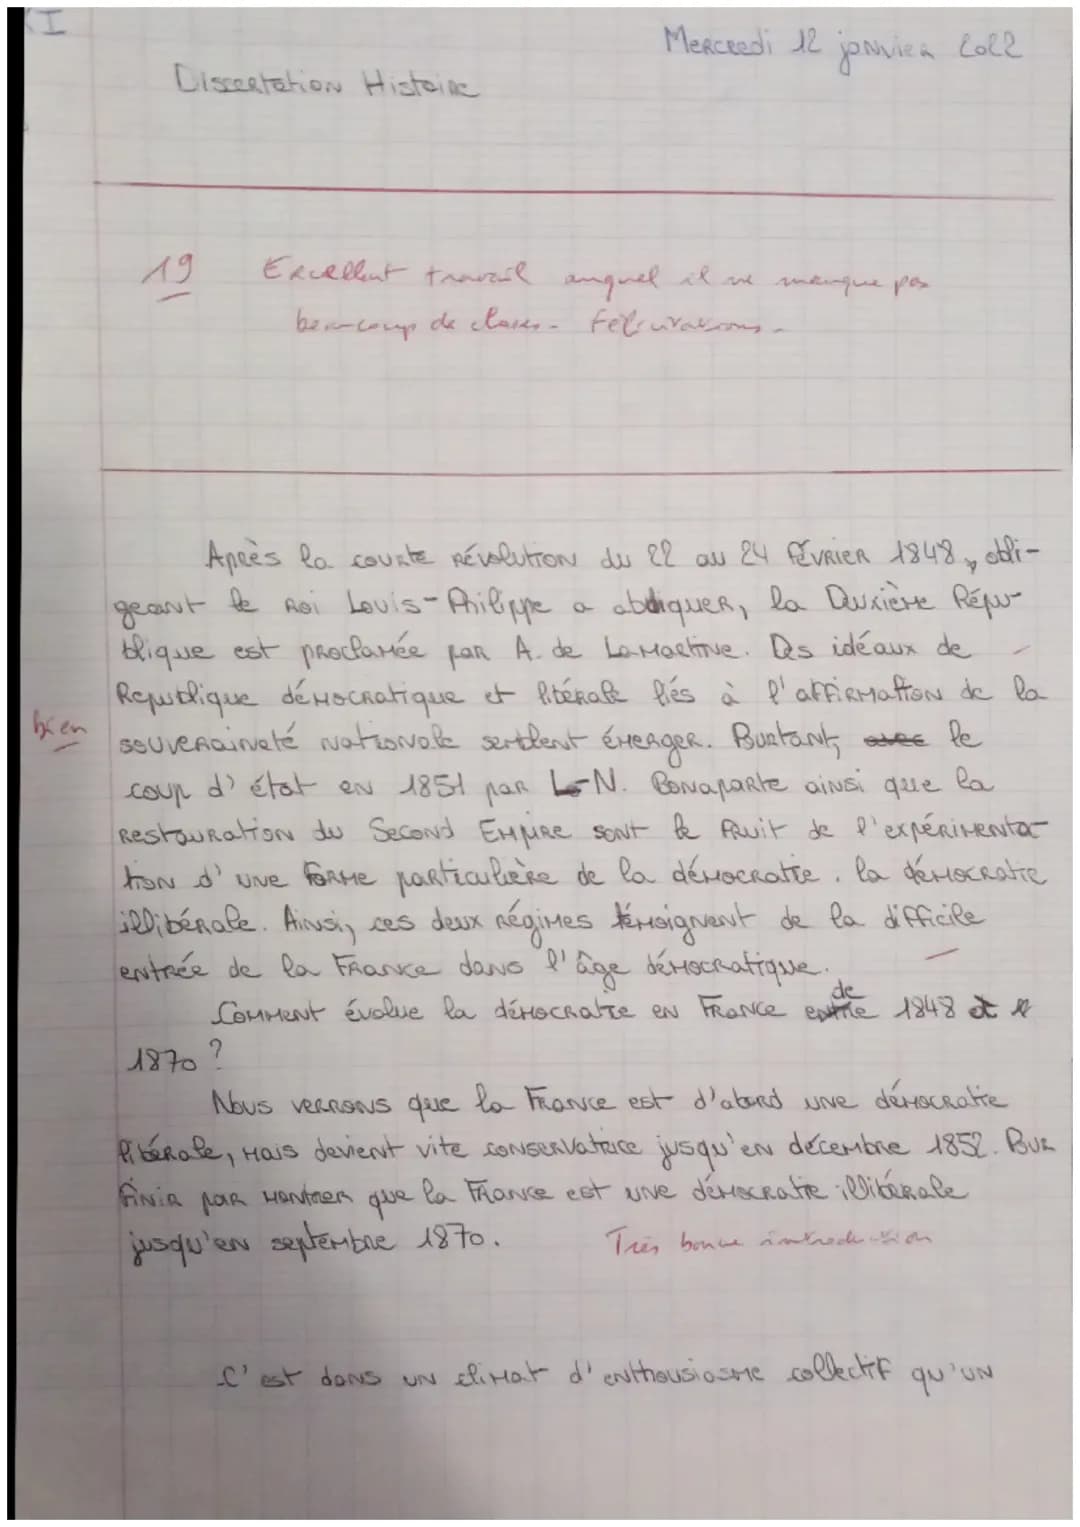 I
Mercredi 12 janvier 2022
Dissertation Histoire
19 Excellent travail auquel il ne manque pas
beaucoup de choses. Félicitations.
Après la courte révolution du 22 au 24 février 1848, obli-
geant le roi Louis-Philippe a abdiquer, la Deuxième Répu-
blique est proclamée par A. de Lamartine. Des idéaux de
République démocratique et libérale liés à l'affirmation de la
bien
souveraineté nationale semblent émerger. Pourtant, avec le
coup d'état en 1851 par L-N. Bonaparte ainsi que la
restauration du Second Empire sont le fruit de l'expérimenta-
tion d'une forme particulière de la démocratie : la démocratie
illibérale. Ainsi, ces deux régimes témoignent de la difficile
entrée de la France dans l'âge démocratique.
Comment évolue la démocratie en France de 1848 à
1870 ?
Nous verrons que la France est d'abord une démocratie
libérale, mais devient vite conservatrice jusqu'en décembre 1852. Pour
finir par montrer que la France est une démocratie illibérale
jusqu'en septembre 1870. Très bonne introduction
C'est dans un climat d'enthousiasme collectif qu'un